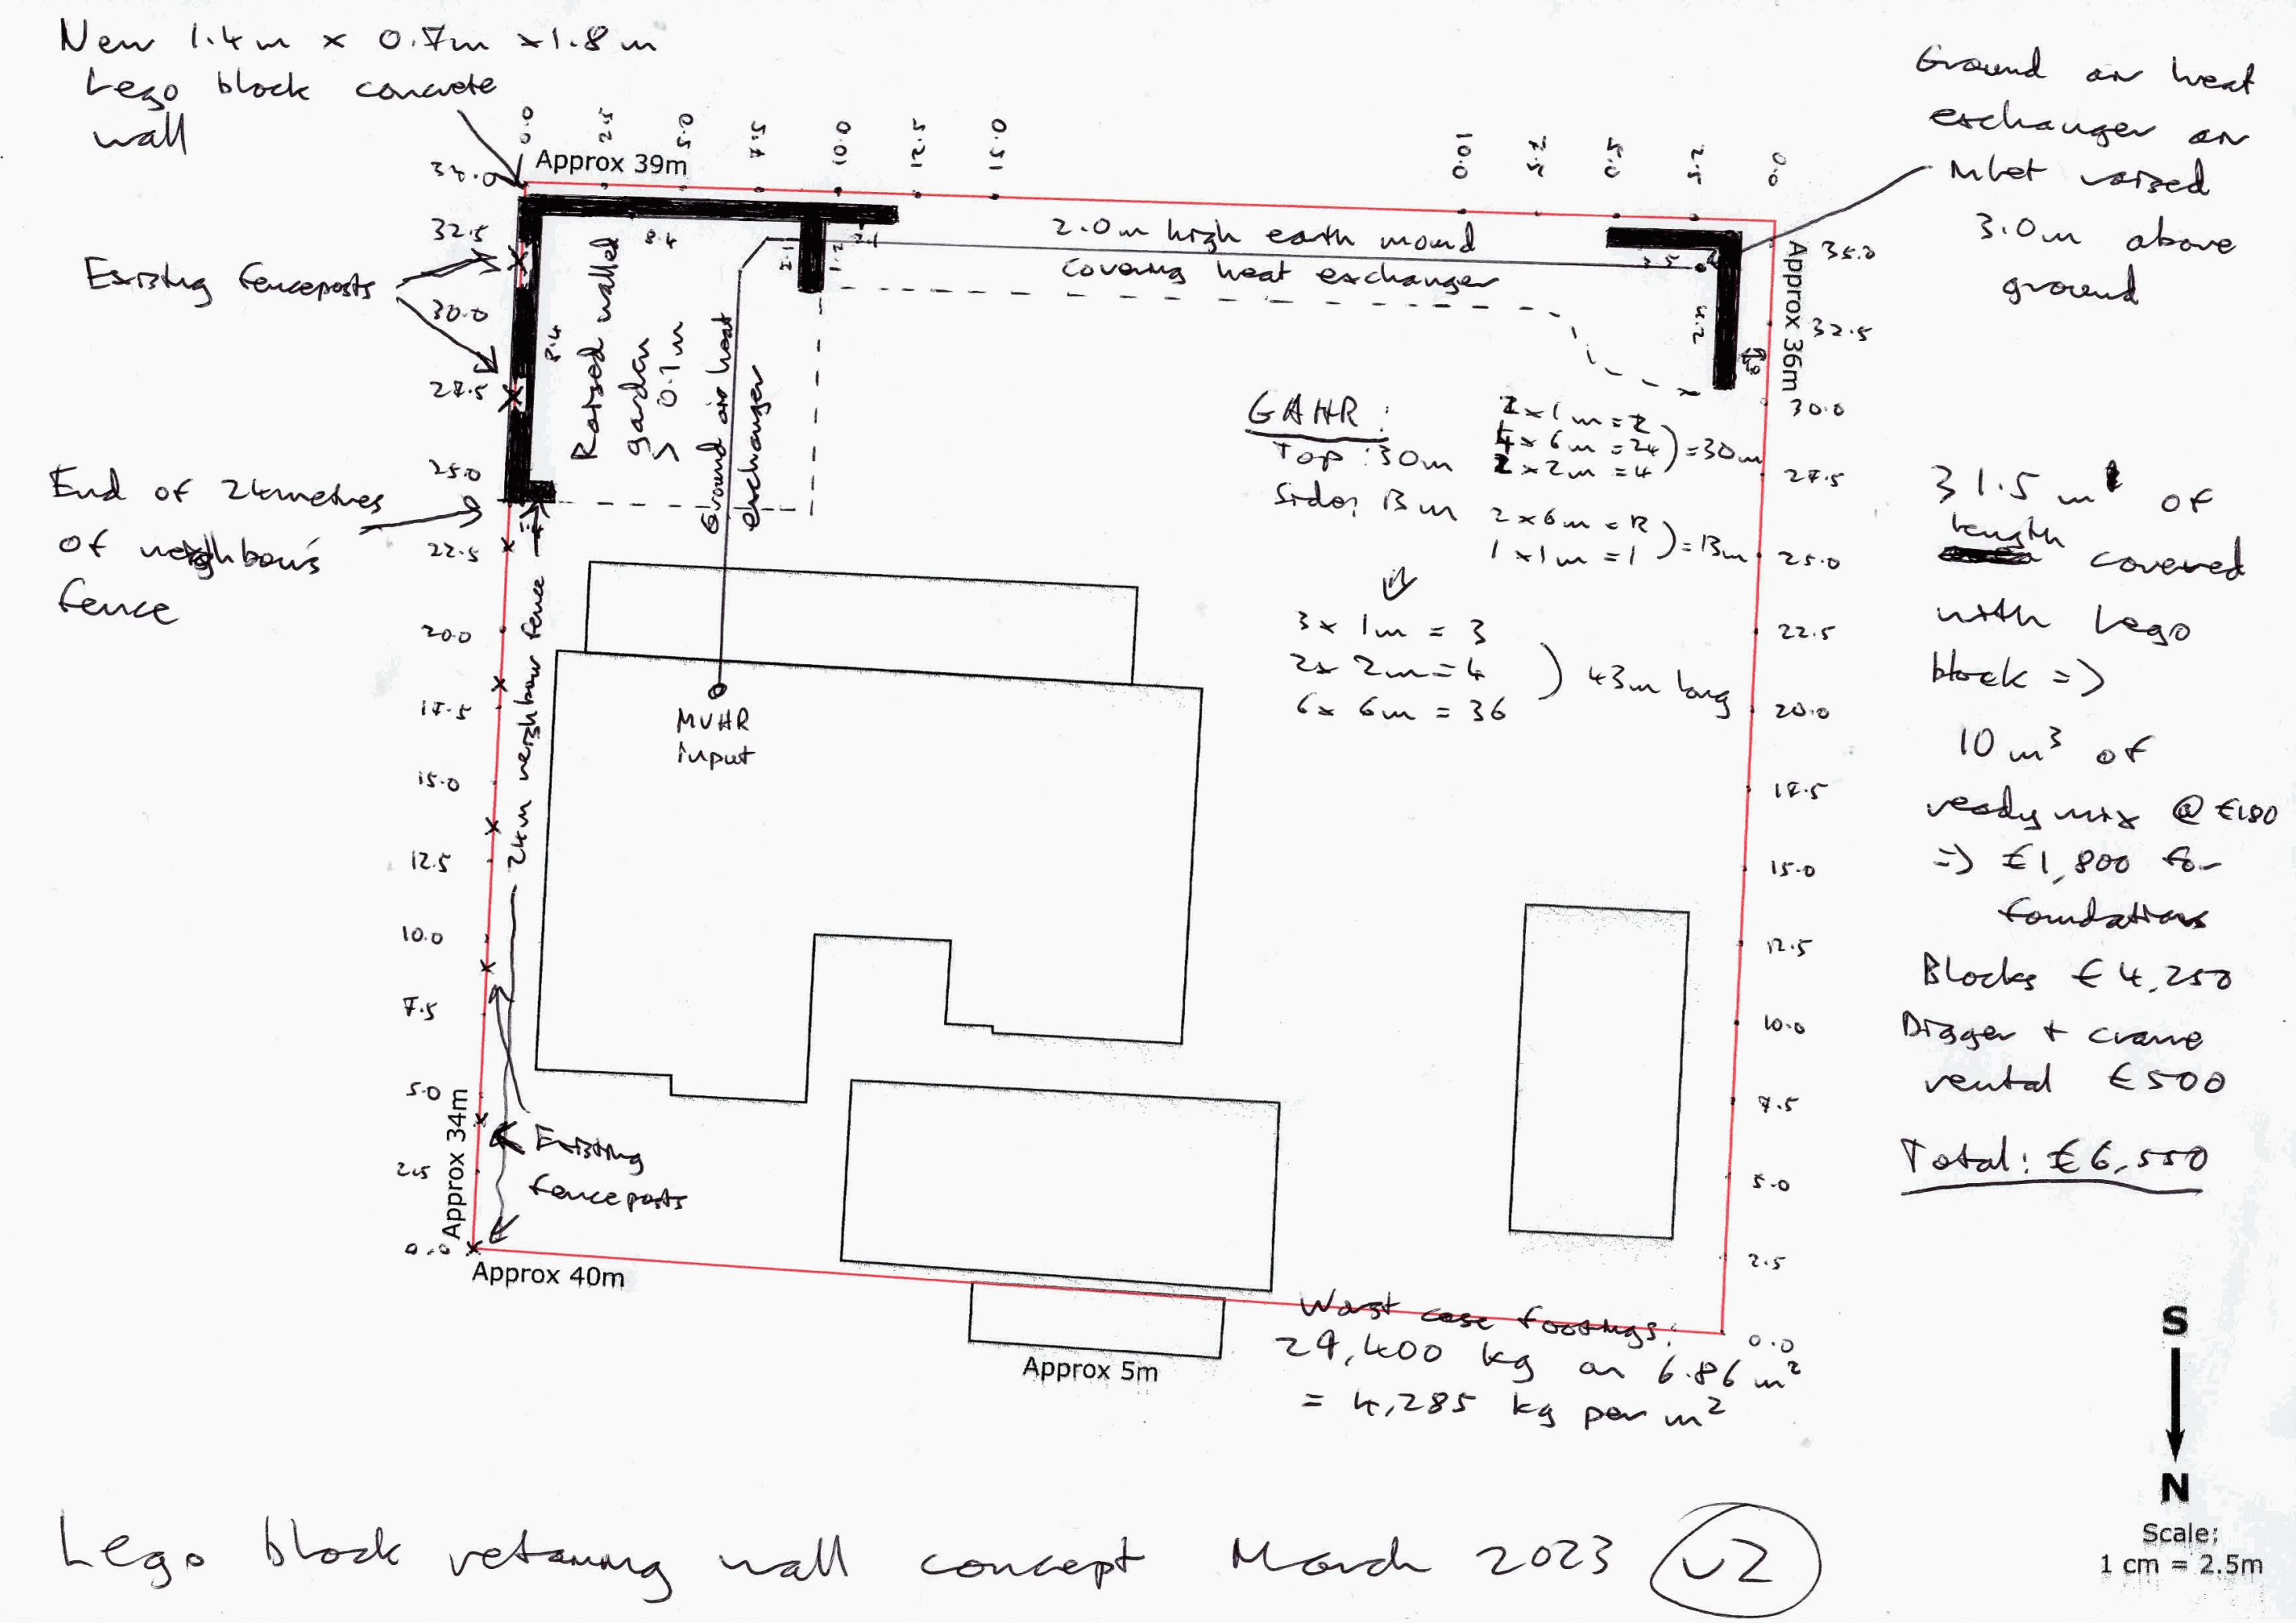 New 1.4m x 0.7m x 1.8m
Lego block concrete
wall
Approx 39m
0.0
2.5
5.0
7.5
10.0
12.5
15.0
10.0
7.5
5.0
2.5
0.0
Ground air heat
exchanger air
inlet raised
3.0m above
ground
34.0
32.5
30.0
27.5
25.0
22.5
20.0
17.5
15.0
12.5
10.0
7.5
5.0
2.5
0.0
Existing fenceposts
End of 24 metres
of neighbour's
fence
8.4
8.4
2.1
Raised walled
garden
> 0.1m
Ground air heat
exchanger
2.0m high earth mound
covering heat exchanger
3.5
Approx 36m
35.0
32.5
30.0
27.5
25.0
22.5
20.0
17.5
15.0
12.5
10.0
7.5
5.0
2.5
0.0
GAHR:
Top: 30m
Side: 13m
2 x 1m = 2
4 x 6m = 24
2 x 2m = 4
) = 30m
2 x 6m = 12
1 x 1m = 1
) = 13m
3 x 1m = 3
2x 2m = 4
6x 6m = 36
) 43m long
24m neighbour fence
MVHR
input
31.5 m of
length covered
with Lego
block =>
10 m³ of
ready mix @ €180
=> €1,800 for
foundations
Blocks €4,250
Digger + crane
rental €500
Total: €6,550
Approx 34m
Existing
fenceposts
Approx 40m
Approx 5m
Worst case footings:
29,400 kg on 6.86 m²
= 4,285 kg per m²
S
N
Scale:
1 cm = 2.5m
Lego block retaining wall concept March 2023 v2